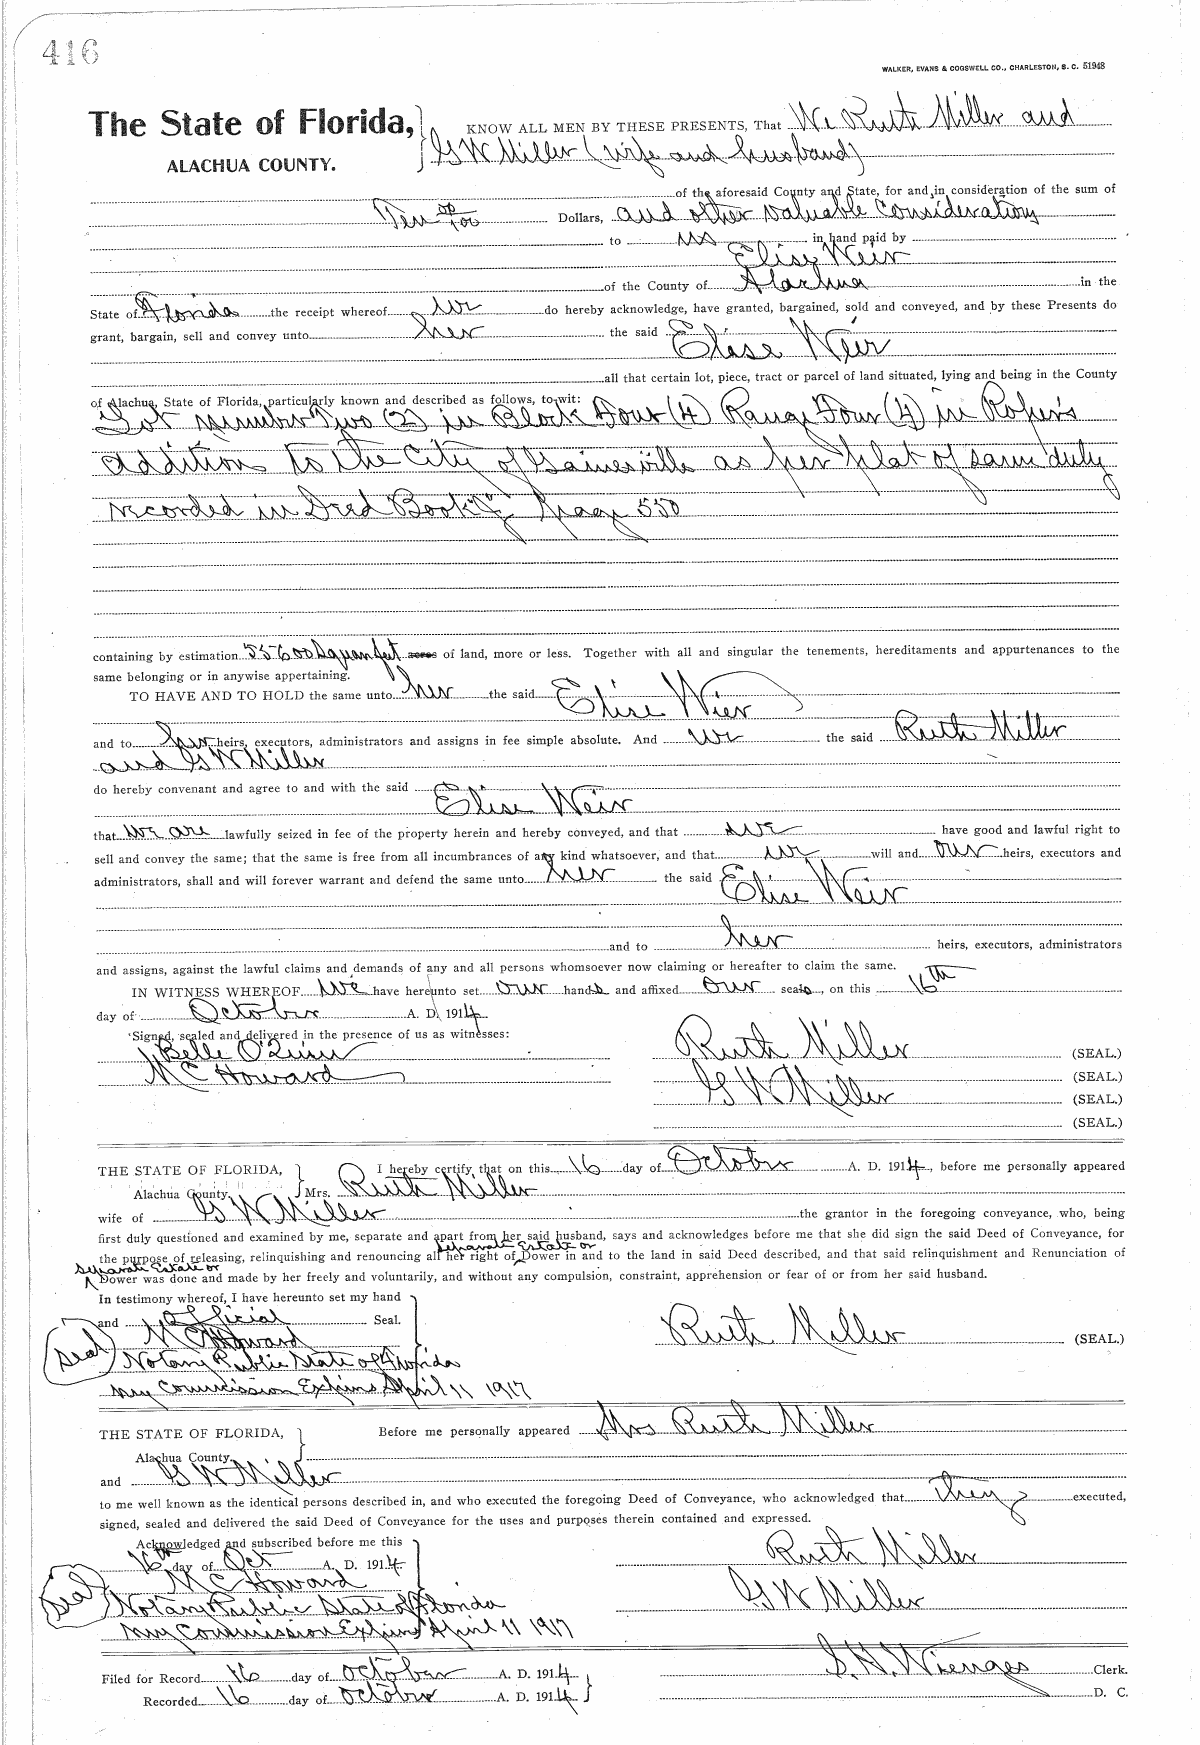 416
WALKER, EVANS & COGSWELL CO., CHARLESTON, S. C. 51948
The State of Florida, KNOW ALL MEN BY THESE PRESENTS, That We Ruth Miller and
ALACHUA COUNTY. G W Miller (wife and husband)
of the aforesaid County and State, for and in consideration of the sum of
Ten 00/100 Dollars, and other valuable Consideration
to us in hand paid by
Elise Weir
of the County of Alachua in the
State of Florida the receipt whereof we do hereby acknowledge, have granted, bargained, sold and conveyed, and by these Presents do
grant, bargain, sell and convey unto her the said Elise Weir
all that certain lot, piece, tract or parcel of land situated, lying and being in the County
of Alachua, State of Florida, particularly known and described as follows, to wit:
Lot number Two (2) in Block Four (4) Range Four (4) in Roper's
addition to the City of Gainesville as per plat of same duly
recorded in Deed Book page 550
containing by estimation 55600 Square feet acres of land, more or less. Together with all and singular the tenements, hereditaments and appurtenances to the
same belonging or in anywise appertaining.
TO HAVE AND TO HOLD the same unto her the said Elise Wier
and to her heirs, executors, administrators and assigns in fee simple absolute. And we the said Ruth Miller
and G W Miller
do hereby convenant and agree to and with the said Elise Weir
that we are lawfully seized in fee of the property herein and hereby conveyed, and that we have good and lawful right to
sell and convey the same; that the same is free from all incumbrances of any kind whatsoever, and that we will and our heirs, executors and
administrators, shall and will forever warrant and defend the same unto her the said Elise Weir
and to her heirs, executors, administrators
and assigns, against the lawful claims and demands of any and all persons whomsoever now claiming or hereafter to claim the same.
IN WITNESS WHEREOF We have hereunto set our hands and affixed our seals, on this 16th
day of October A. D. 1914
Signed, sealed and delivered in the presence of us as witnesses:
Belle O'Quinn Ruth Miller (SEAL.)
M C Howard G W Miller (SEAL.)
(SEAL.)
(SEAL.)
THE STATE OF FLORIDA, I hereby certify that on this 16 day of October A. D. 1914, before me personally appeared
Alachua County. Mrs. Ruth Miller
wife of G W Miller the grantor in the foregoing conveyance, who, being
first duly questioned and examined by me, separate and apart from her said husband, says and acknowledges before me that she did sign the said Deed of Conveyance, for
separate Estate or
the purpose of releasing, relinquishing and renouncing all her right of Dower in and to the land in said Deed described, and that said relinquishment and Renunciation of
separate Estate or
Dower was done and made by her freely and voluntarily, and without any compulsion, constraint, apprehension or fear of or from her said husband.
In testimony whereof, I have hereunto set my hand
and official Seal.
M C Howard Ruth Miller (SEAL.)
(seal) Notary Public State of Florida
My Commission Expires April 11 1917
THE STATE OF FLORIDA, Before me personally appeared Mrs Ruth Miller
Alachua County.
and G W Miller
to me well known as the identical persons described in, and who executed the foregoing Deed of Conveyance, who acknowledged that they executed,
signed, sealed and delivered the said Deed of Conveyance for the uses and purposes therein contained and expressed.
Acknowledged and subscribed before me this
16th day of Oct A. D. 1914 Ruth Miller
M C Howard G W Miller
(seal) Notary Public State of Florida
My Commission Expires April 11 1917
S. H. Wienges Clerk.
Filed for Record 16 day of October A. D. 1914
Recorded 16 day of October A. D. 1914 D. C.